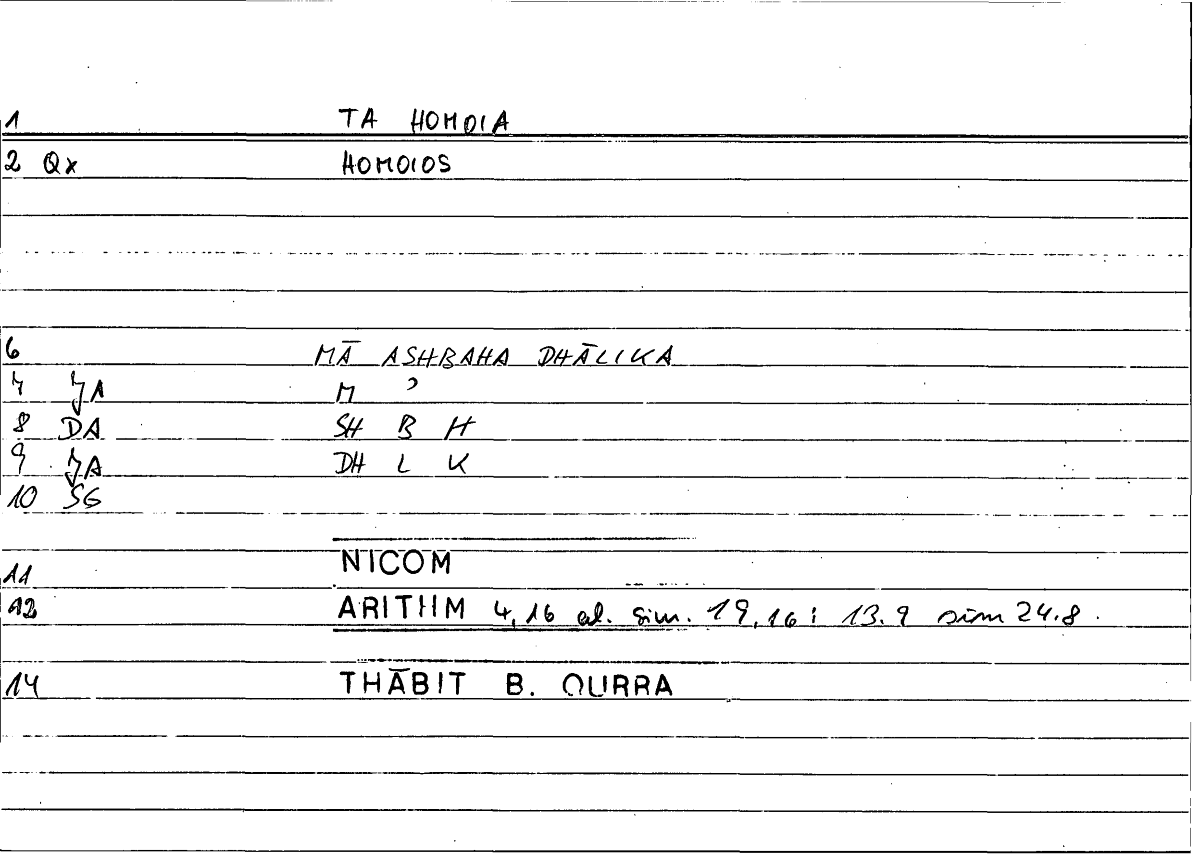 1 TA HOMOIA
2 Qx HOMOIOS
6 MĀ ASHBAHA DHĀLIKA
7 JA M ʾ
8 DA SH B H
9 JA DH L K
10 SG
11 NICOM
12 ARITHM 4,16 al. sim. 19,16; 13.9 sim 24.8.
14 THĀBIT B. QURRA